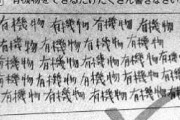 有機物をできるだけたくさん書きなさい
有機物 有機物 有機物 有機物
有機物 有機物 有機物 有機物
有機物 有機物 有機物 有機物 有機物
有機物 有機物 有機物 有機物 有機物
有機物 有機物 有機物 有機物 有機物